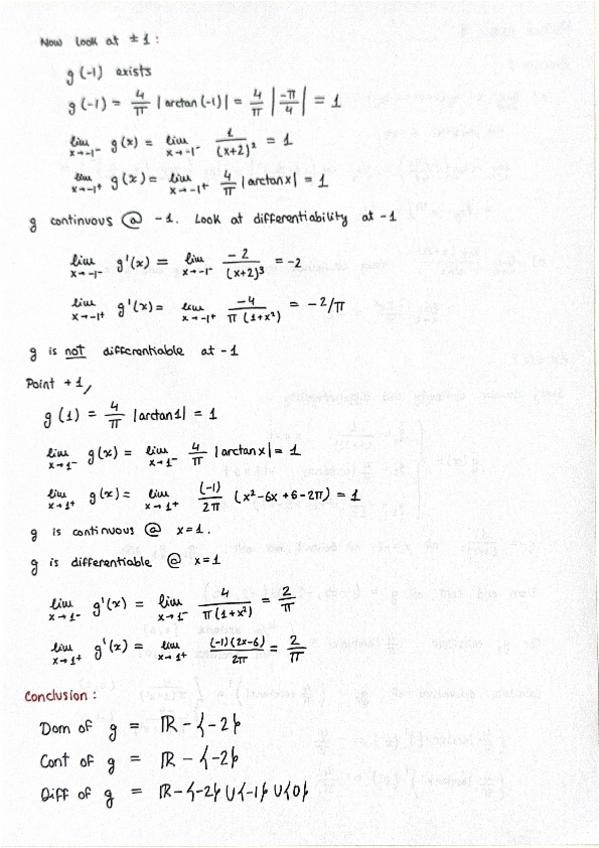 Now look at ± 1 :
g (-1) exists
g (-1) = 4/π |arctan (-1)| = 4/π |-π/4| = 1
lim x→-1⁻ g(x) = lim x→-1⁻ 1/(x+2)² = 1
lim x→-1⁺ g(x) = lim x→-1⁺ 4/π |arctan x| = 1
g continuous @ -1. Look at differentiability at -1
lim x→-1⁻ g'(x) = lim x→-1⁻ -2/(x+2)³ = -2
lim x→-1⁺ g'(x) = lim x→-1⁺ -4/π(1+x²) = -2/π
g is not differentiable at -1
Point +1,
g (1) = 4/π |arctan 1| = 1
lim x→1⁻ g(x) = lim x→1⁻ 4/π |arctan x| = 1
lim x→1⁺ g(x) = lim x→1⁺ (-1)/2π (x²-6x+6-2π) = 1
g is continuous @ x=1.
g is differentiable @ x=1
lim x→1⁻ g'(x) = lim x→1⁻ 4/π(1+x²) = 2/π
lim x→1⁺ g'(x) = lim x→1⁺ (-1)(2x-6)/2π = 2/π
Conclusion :
Dom of g = ℝ - {-2}
Cont of g = ℝ - {-2}
Diff of g = ℝ - {-2} ∪ {-1} ∪ {0}